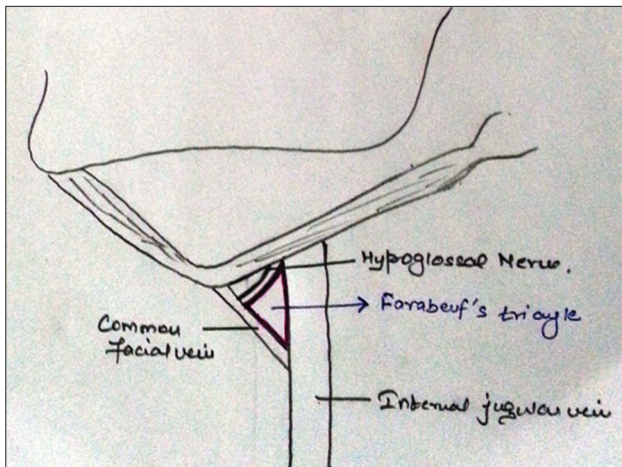 Hypoglossal Nerve.
Farabeuf's triangle
Common
facial vein
Internal jugular vein